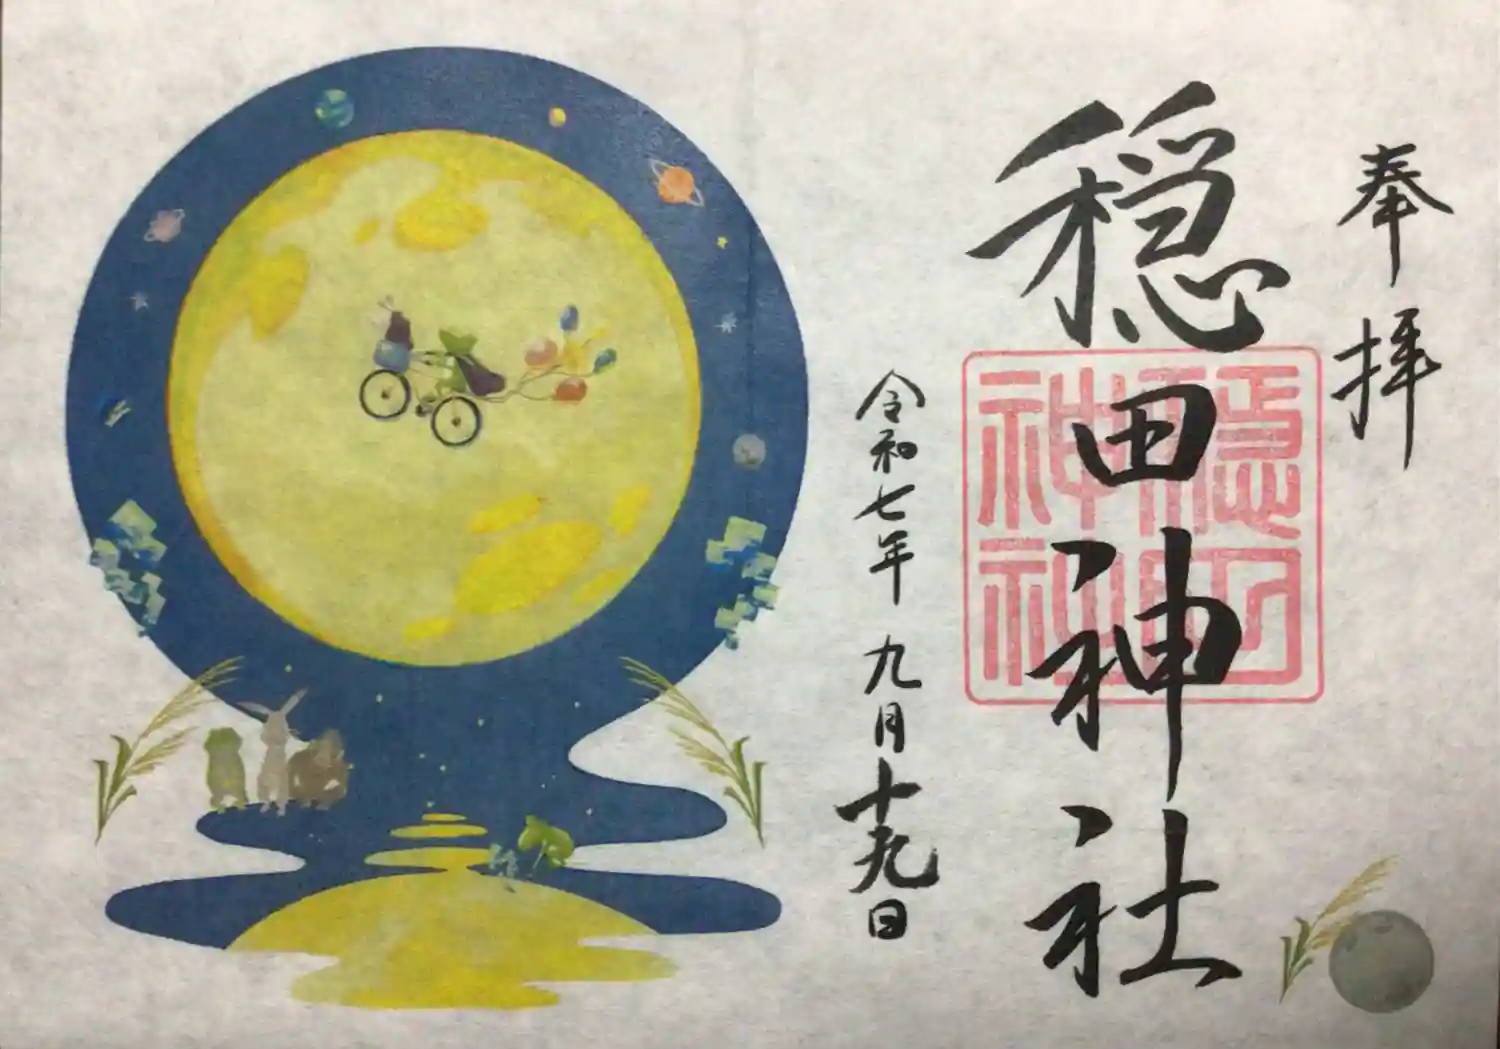 奉拝
穏田神社
穏田神社
令和七年 九月十九日